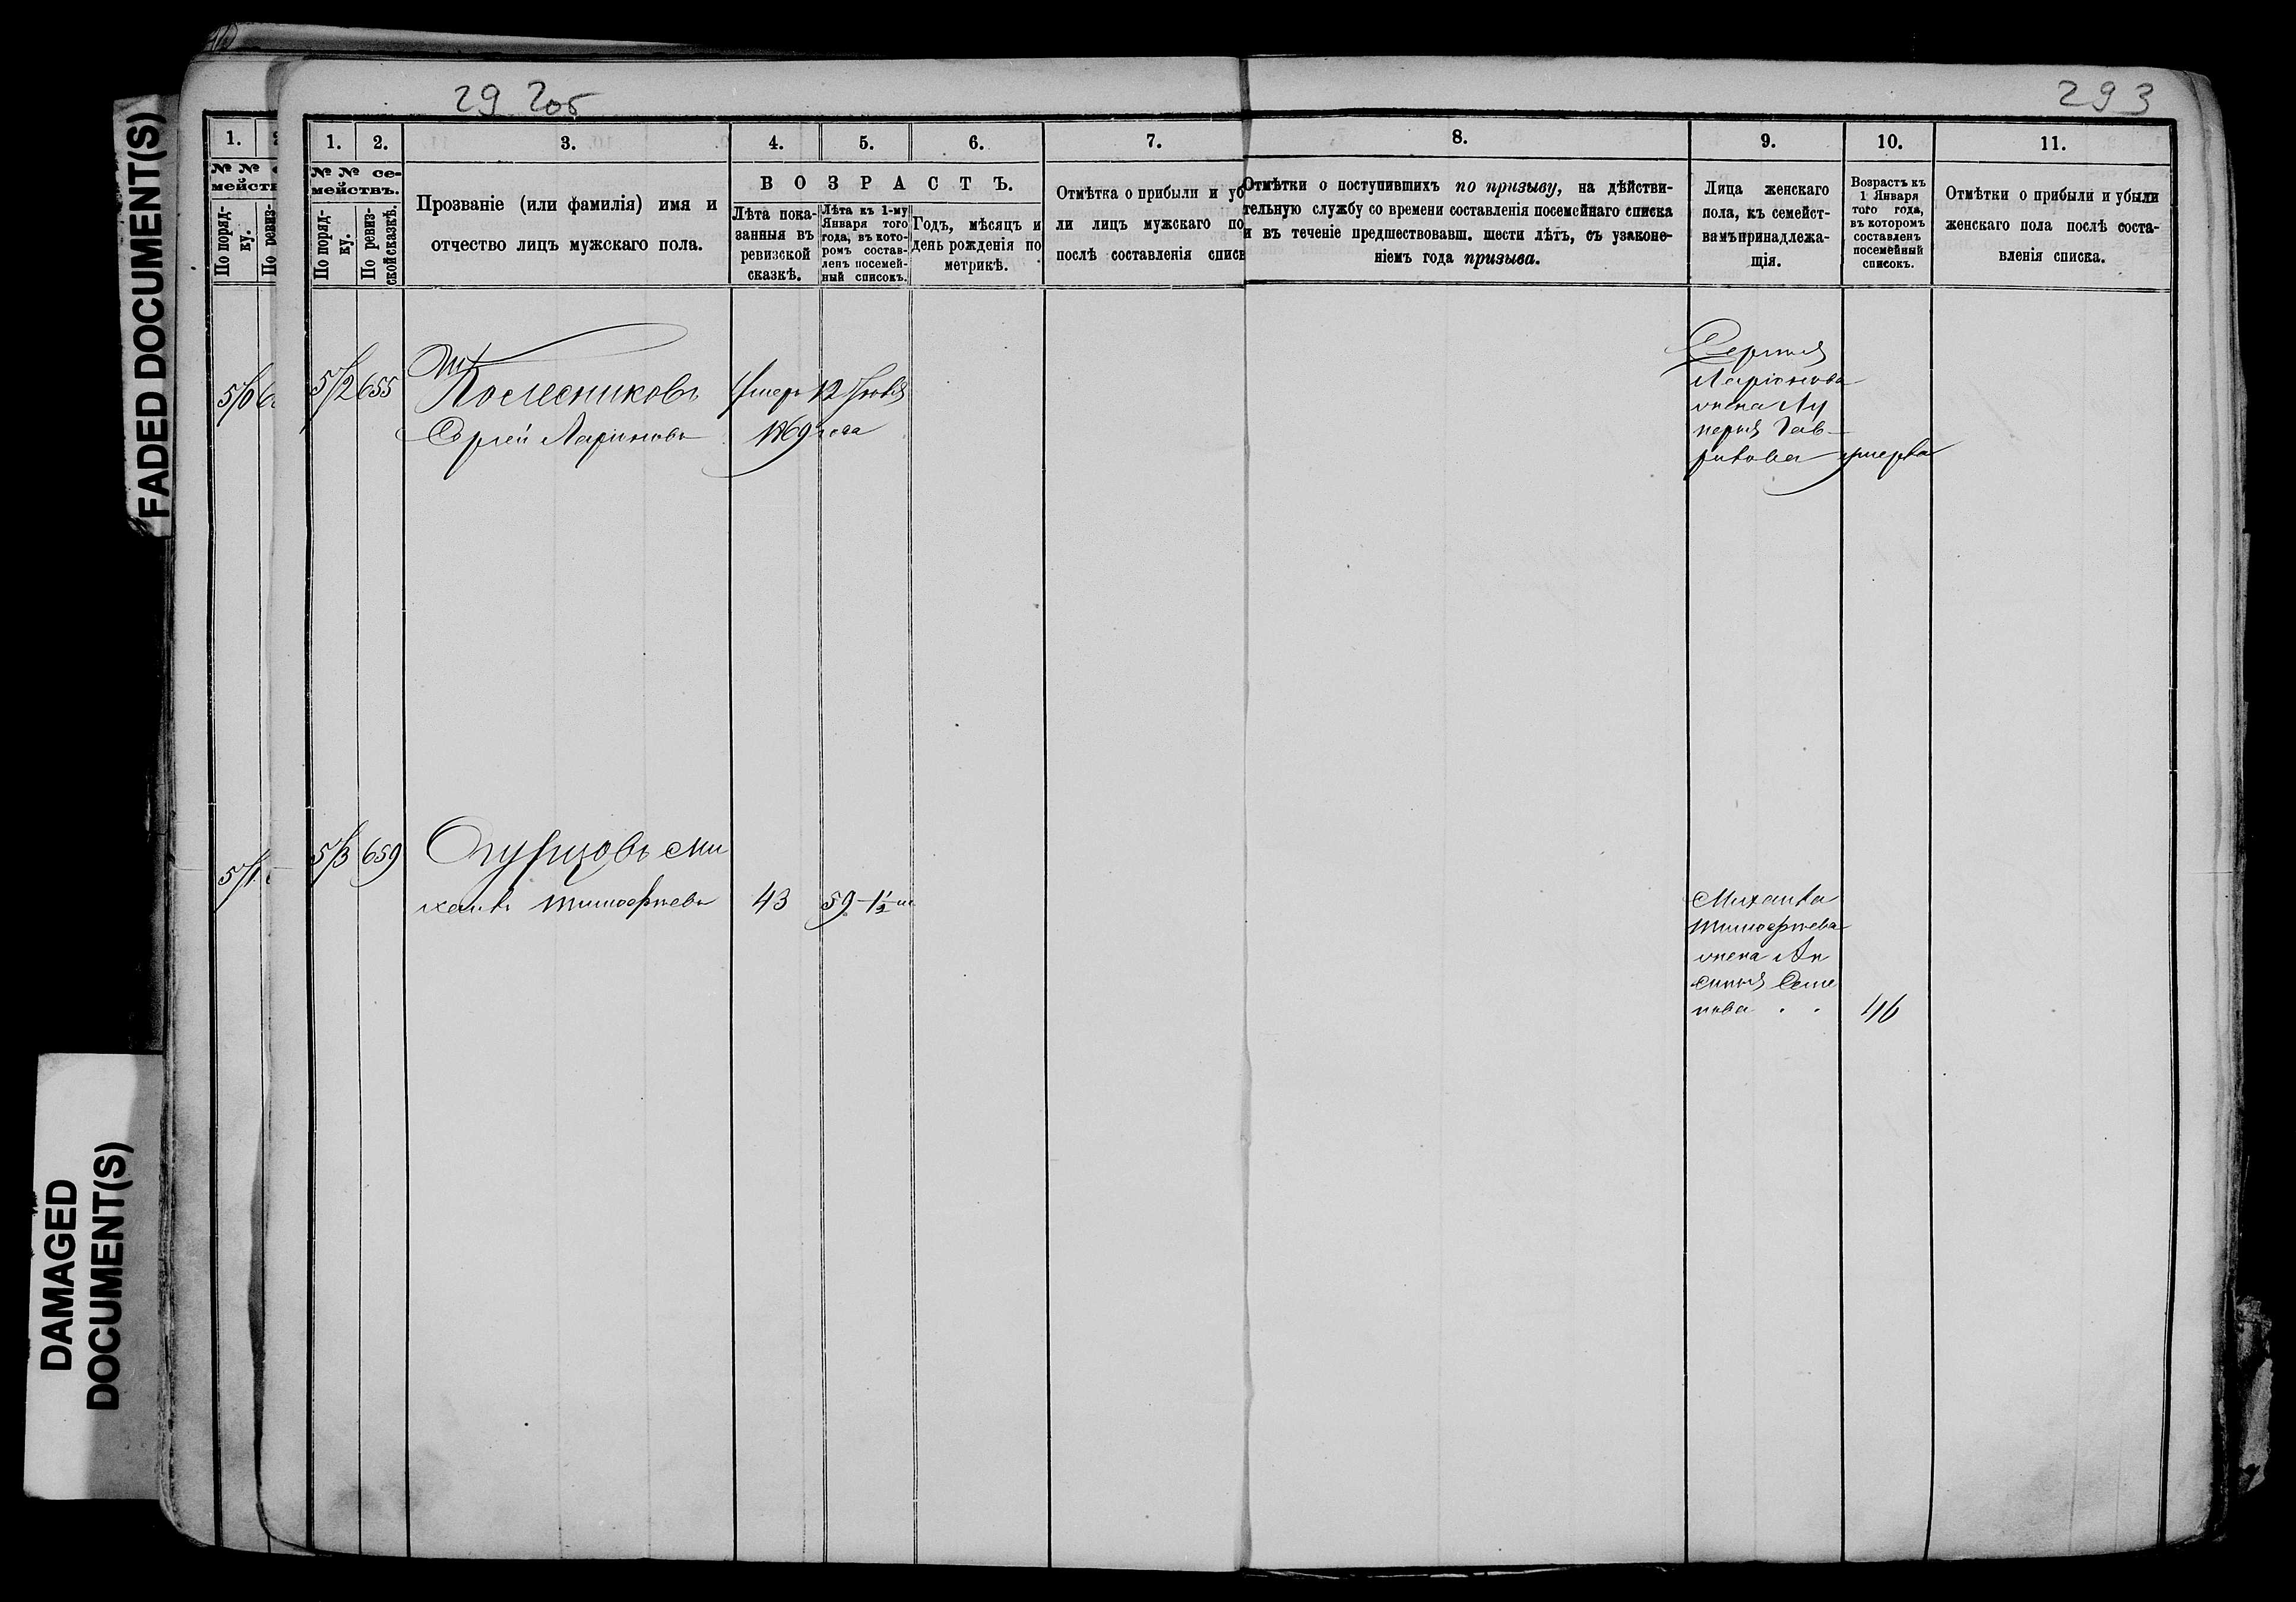 FADED DOCUMENT(S)
DAMAGED
DOCUMENT(S)
29 2об
293
1.
№ №
По поряд-
ку.
По ревиз-
1. 2. 3. 4. 5. 6. 7. 8. 9. 10. 11.
№ № се-
мействъ.
По поряд-
ку.
По ревиз-
ской сказкѣ.
Прозваніе (или фамилія) имя и
отчество лицъ мужскаго пола.
ВОЗРАСТЪ.
Лѣта пока-
занныя въ
ревизской
сказкѣ.
Лѣта къ 1-му
Января того
года, въ кото-
ромъ состав-
ленъ посемей-
ный списокъ.
Годъ, мѣсяцъ и
день рожденія по
метрикѣ.
Отмѣтка о прибыли и уб
ли лицъ мужскаго по
послѣ составленія списк
Отмѣтки о поступившихъ по призыву, на дѣйстви-
тельную службу со времени составленія посемейнаго списка
и въ теченіе предшествовавш. шести лѣтъ, съ узаконе-
ніемъ года призыва.
Лица женскаго
пола, къ семейст-
вамъ принадлежа-
щія.
Возрастъ къ
1 Января
того года,
въ которомъ
составленъ
посемейный
списокъ.
Отмѣтки о прибыли и убыли
женскаго пола послѣ соста-
вленія списка.
510
512 655
Колесниковъ
Сергѣй Ларіоновъ
Умеръ 12
1869 года
Сергѣя
Ларіонова
жена Лу
керья Гав-
рилова умерла
511
513 659
Огурцовъ Ми
хаилъ Тимофѣевъ 43 59 1/2
Михаила
Тимофѣева
жена Ак
синья Семе
нова 46